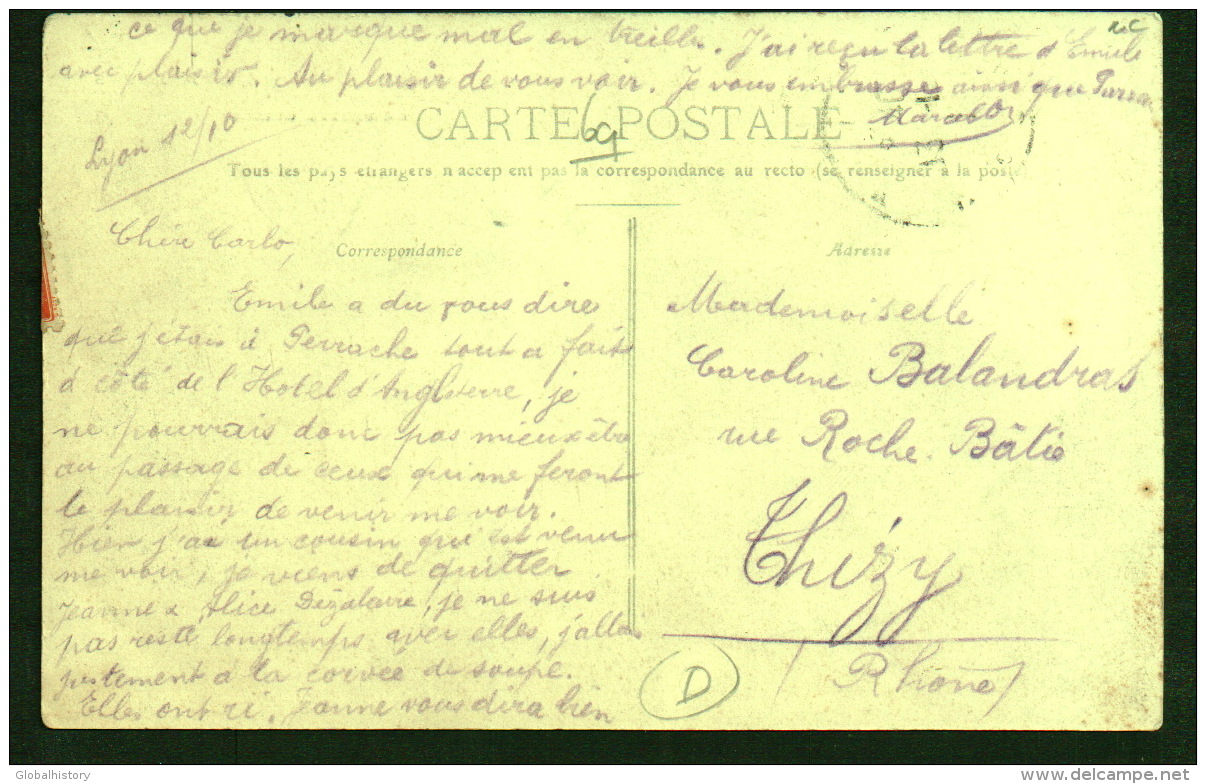 ce que je marque mal en ville. J'ai reçu la lettre d'Emile
avec plaisir. Au plaisir de vous voir. Je vous embrasse ainsi que
CARTE POSTALE
69
Lyon 12/10
Tous les pays etrangers n'accep ent pas la correspondance au recto (se renseigner à la poste)
Chère Carlo,
Correspondance
Emile a du vous dire
que j'étais à Perrache tout a fait
à côté de l'Hotel d'Angleterre, je
ne pourrais donc pas mieux être
au passage de ceux qui me feront
le plaisir de venir me voir.
Hier j'ai un cousin qui est venu
me voir, je viens de quitter
Jeanne & Alice je ne suis
pas resté longtemps avec elles, j'allais
justement à la corvée de soupe.
Elles ont ri, vous dira bien
Adresse
Mademoiselle
Caroline Balandras
rue Roche-Bâtie
Thizy
(Rhône)
D
Globalhistory
delcampe.net